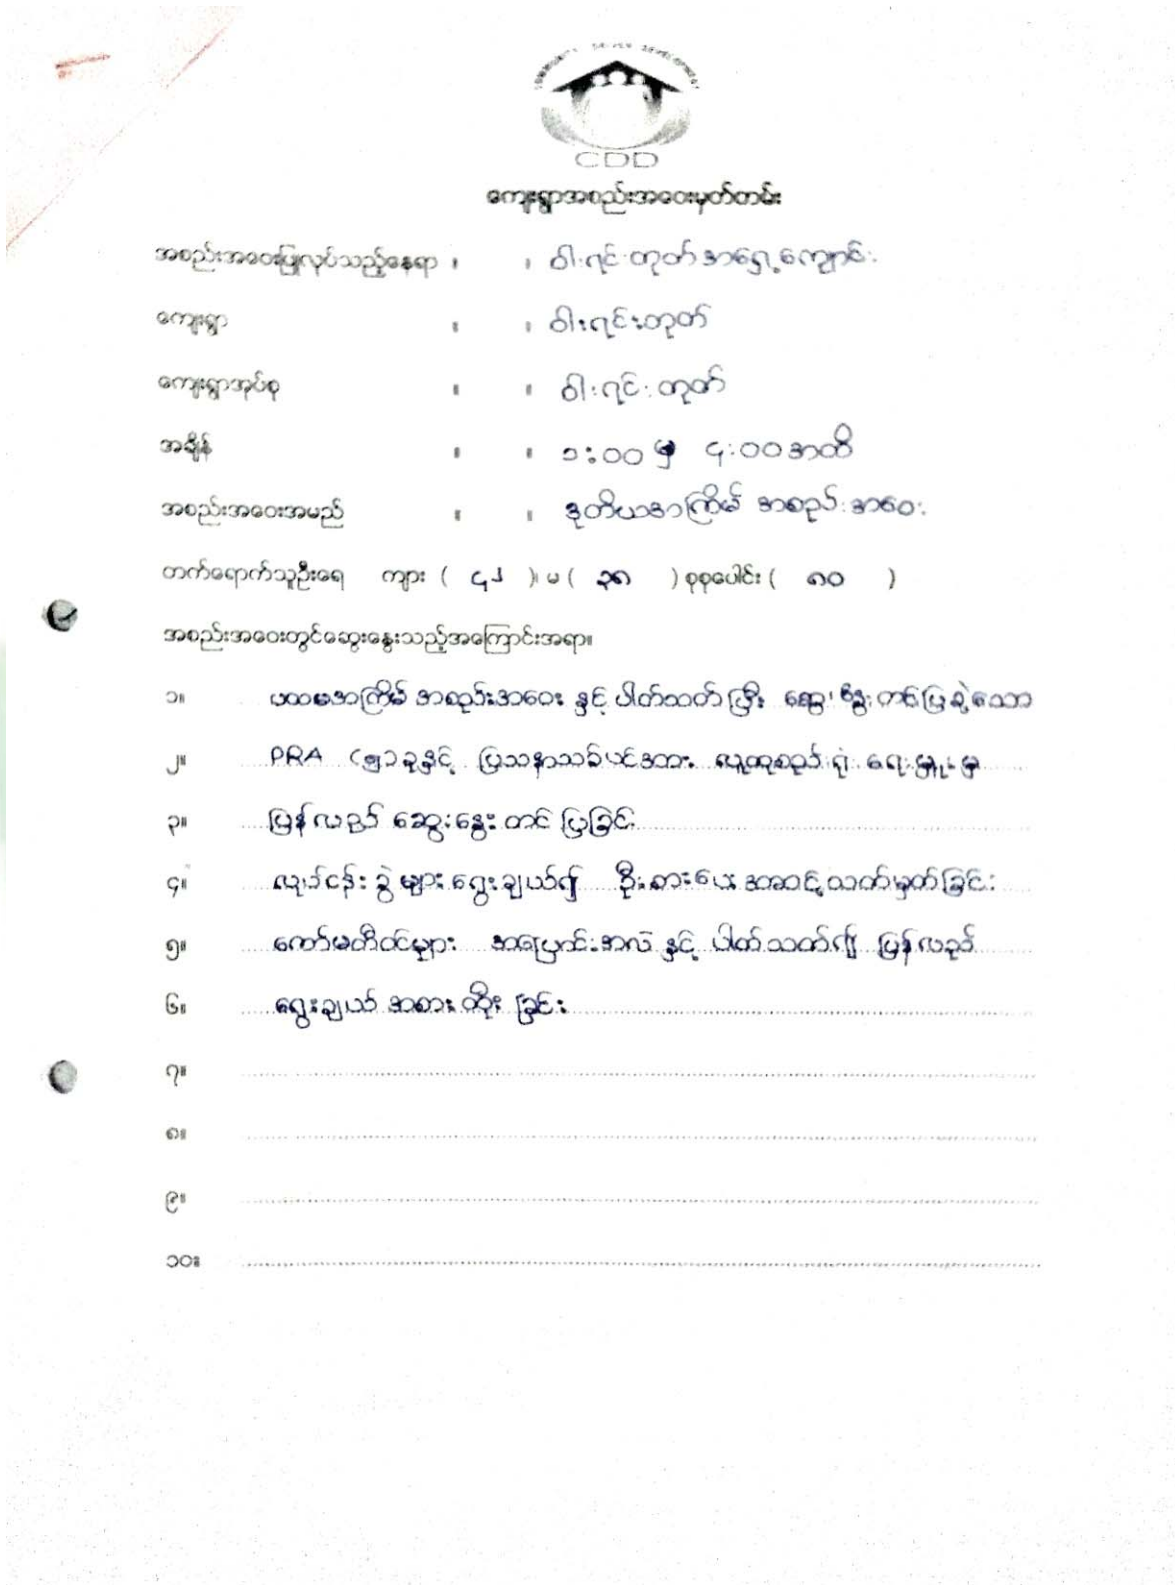 COMMUNITY DRIVEN DEVELOPMENT
CDD
ကျေးရွာအစည်းအဝေးမှတ်တမ်း
အစည်းအဝေးပြုလုပ်သည့်နေရာ ၊ ၊ ဝါးရင်းတုတ်အရှေ့ကျောင်း
ကျေးရွာ ။ ။ ဝါးရင်းတုတ်
ကျေးရွာအုပ်စု ။ ။ ဝါးရင်းတုတ်
အချိန် ။ ။ ၁:၀၀ မှ ၄:၀၀ အထိ
အစည်းအဝေးအမည် ။ ။ ဒုတိယအကြိမ် အစည်းအဝေး
တက်ရောက်သူဦးရေ ကျား ( ၄၂ )၊ မ ( ၃၈ ) စုစုပေါင်း ( ၈၀ )
အစည်းအဝေးတွင်ဆွေးနွေးသည့်အကြောင်းအရာ။
၁။ ပထမအကြိမ် အစည်းအဝေး နှင့် ပါတ်သတ်ပြီး ဆွေးနွေးတင်ပြခဲ့သော
၂။ PRA (၅)ခုနှင့် ပြသနာသစ်ပင်အား လူထုစည်းရုံးရေးမှူးမှ
၃။ ပြန်လည် ဆွေးနွေးတင်ပြခြင်း
၄။ လုပ်ငန်းခွဲများရွေးချယ်၍ ဦးစားပေးအဆင့်သတ်မှတ်ခြင်း
၅။ ကော်မတီဝင်များ အပြောင်းအလဲ နှင့် ပါတ်သတ်၍ ပြန်လည်
၆။ ရွေးချယ် အစားထိုးခြင်း
၇။
၈။
၉။
၁၀။